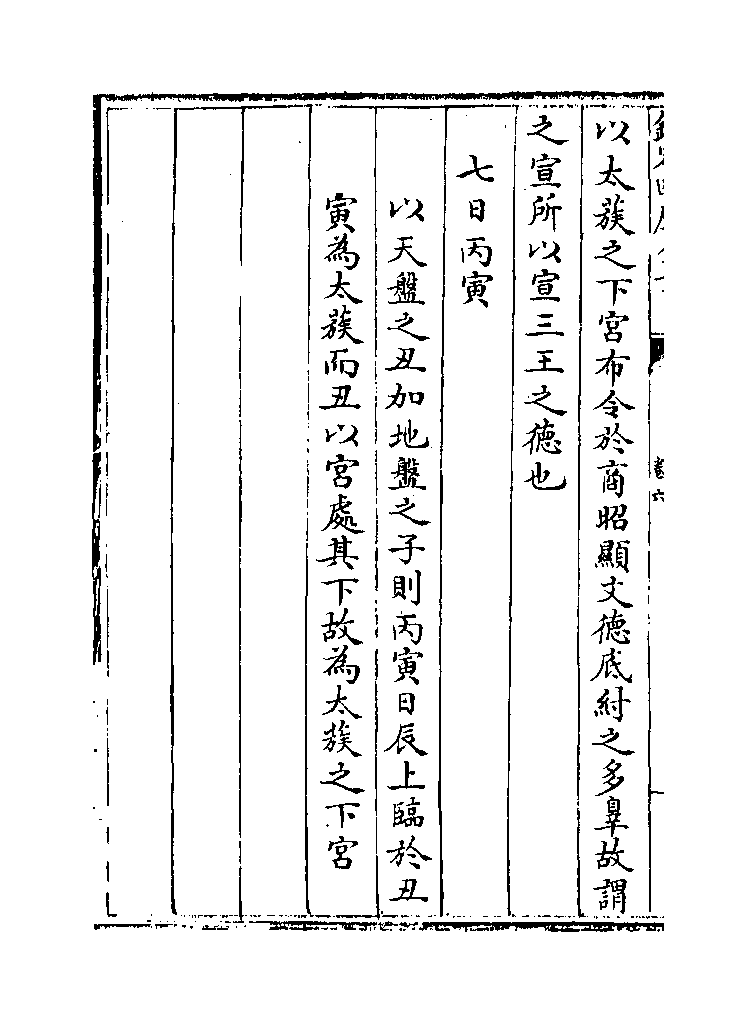 以太蔟之下宮布令於商昭顯文德底紂之多辠故謂
之宣所以宣三王之德也
七日丙寅
以天盤之丑加地盤之子則丙寅日辰上臨於丑
寅為太蔟而丑以宮處其下故為太蔟之下宮
卷六